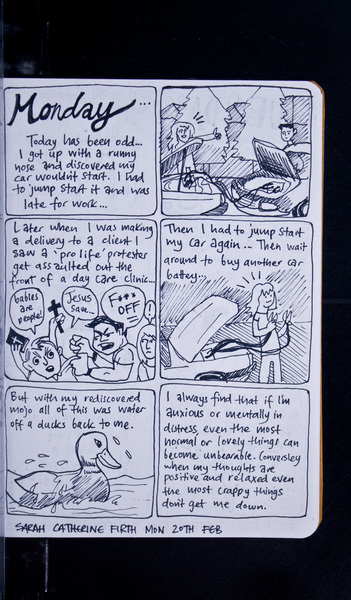 Monday...
Today has been odd...
I got up with a runny
nose and discovered my
car wouldn't start. I had
to jump start it and was
late for work...
Later when I was making
a delivery to a client I
saw a 'pro life' protester
get assaulted out the
front of a day care clinic...
babies
are
people!
Jesus
save...
F***
OFF
!
Then I had to jump start
my car again... Then wait
around to buy another car
battey...
But with my rediscovered
mojo all of this was water
off a ducks back to me.
I always find that if I'm
anxious or mentally in
distress even the most
normal or lovely things can
become unbearable. Conversley
when my thoughts are
positive and relaxed even
the most crappy things
don't get me down.
SARAH CATHERINE FIRTH MON 20TH FEB